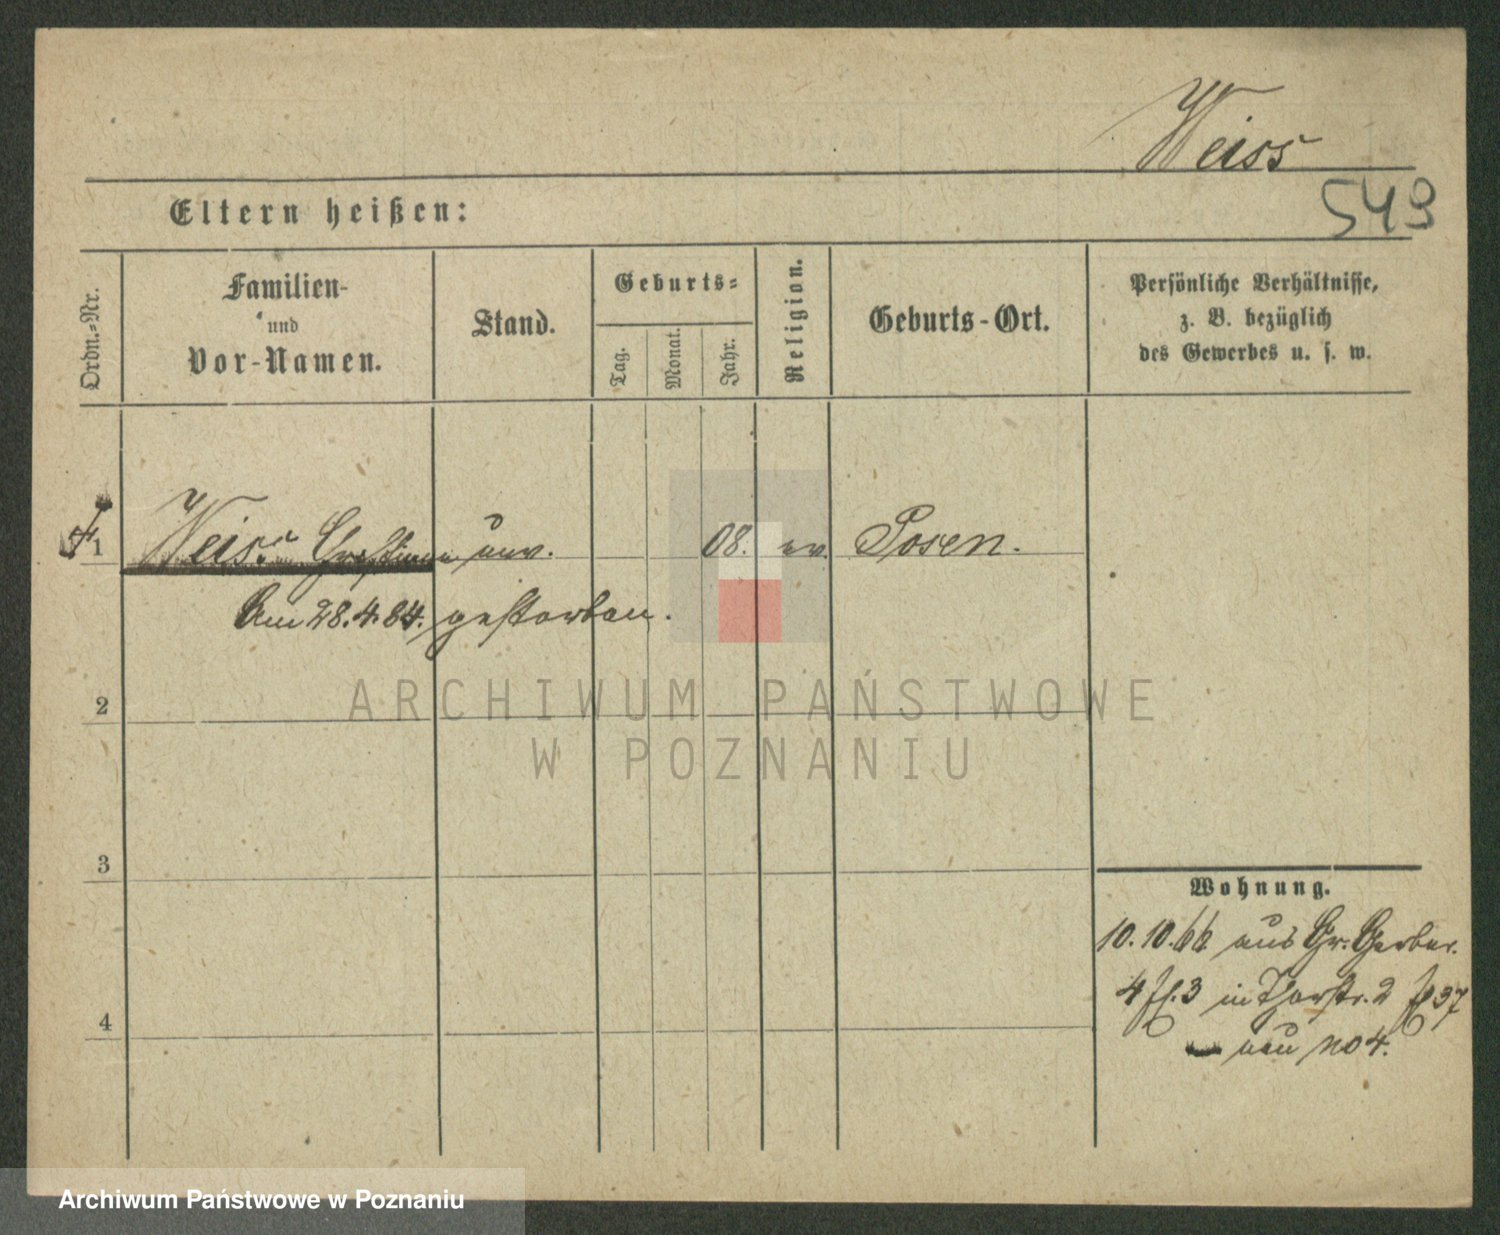 Weiss
549
Eltern heißen:
Ordn.-Nr.
Familien-
und
Vor-Namen.
Stand.
Geburts-
Tag.
Monat.
Jahr.
Religion.
Geburts-Ort.
Persönliche Verhältnisse,
z. B. bezüglich
des Gewerbes u. s. w.
1 Weiss unv. 08. ev. Posen.
Am 28.4.84. gestorben.
ARCHIWUM PAŃSTWOWE
W POZNANIU
2
3
4
Wohnung.
10.10.66 aus Gr. Gerber.
4 3 in Thorstr. 2 37
neu no 4.
Archiwum Państwowe w Poznaniu